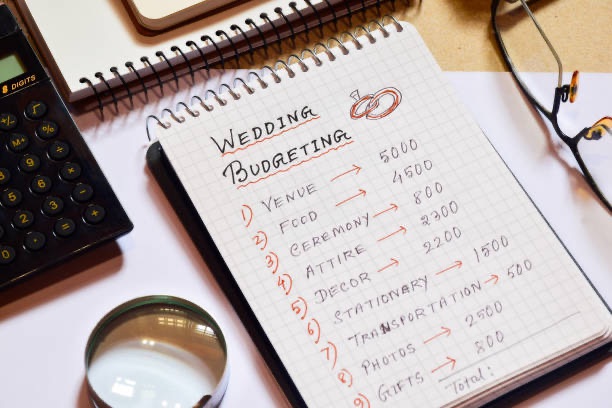 8 DIGITS
+/- √
M+ %
9 ÷
5 6 ×
2 3 -
0 . = +
WEDDING
BUDGETING
1) VENUE → 5000
2) FOOD → 4500
3) CEREMONY → 800
4) ATTIRE → 2300
5) DECOR → 2200
6) STATIONARY → 1500
7) TRANSPORTATION → 500
8) PHOTOS → 2500
9) GIFTS → 800
Total: